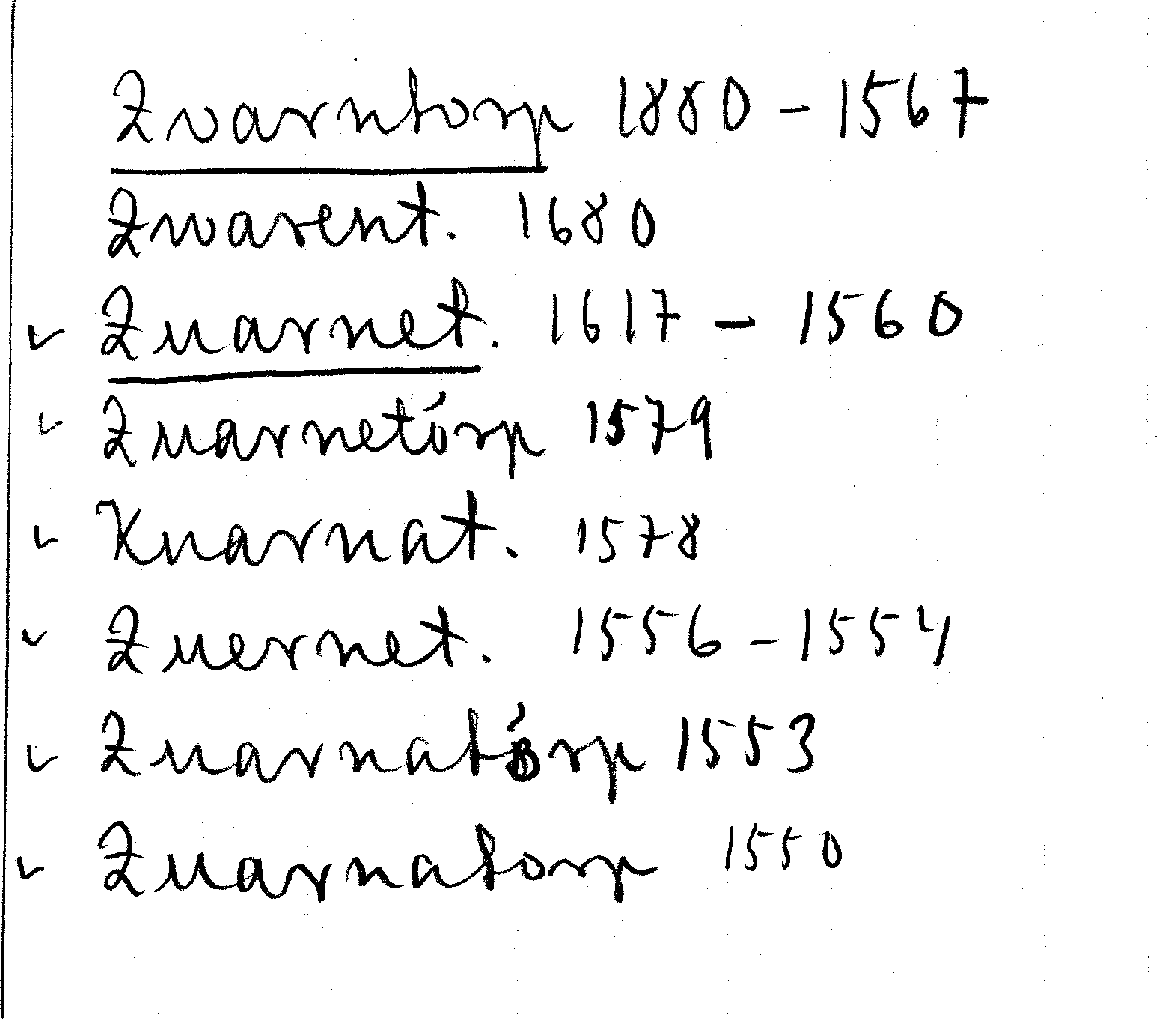 Qvarntorp 1880 - 1567
Qwarent. 1680
Quarnet. 1617 - 1560
Quarnetórp 1579
Kuarnat. 1578
Quernet. 1556 - 1554
Quarnatórp 1553
Quarnatorp 1550